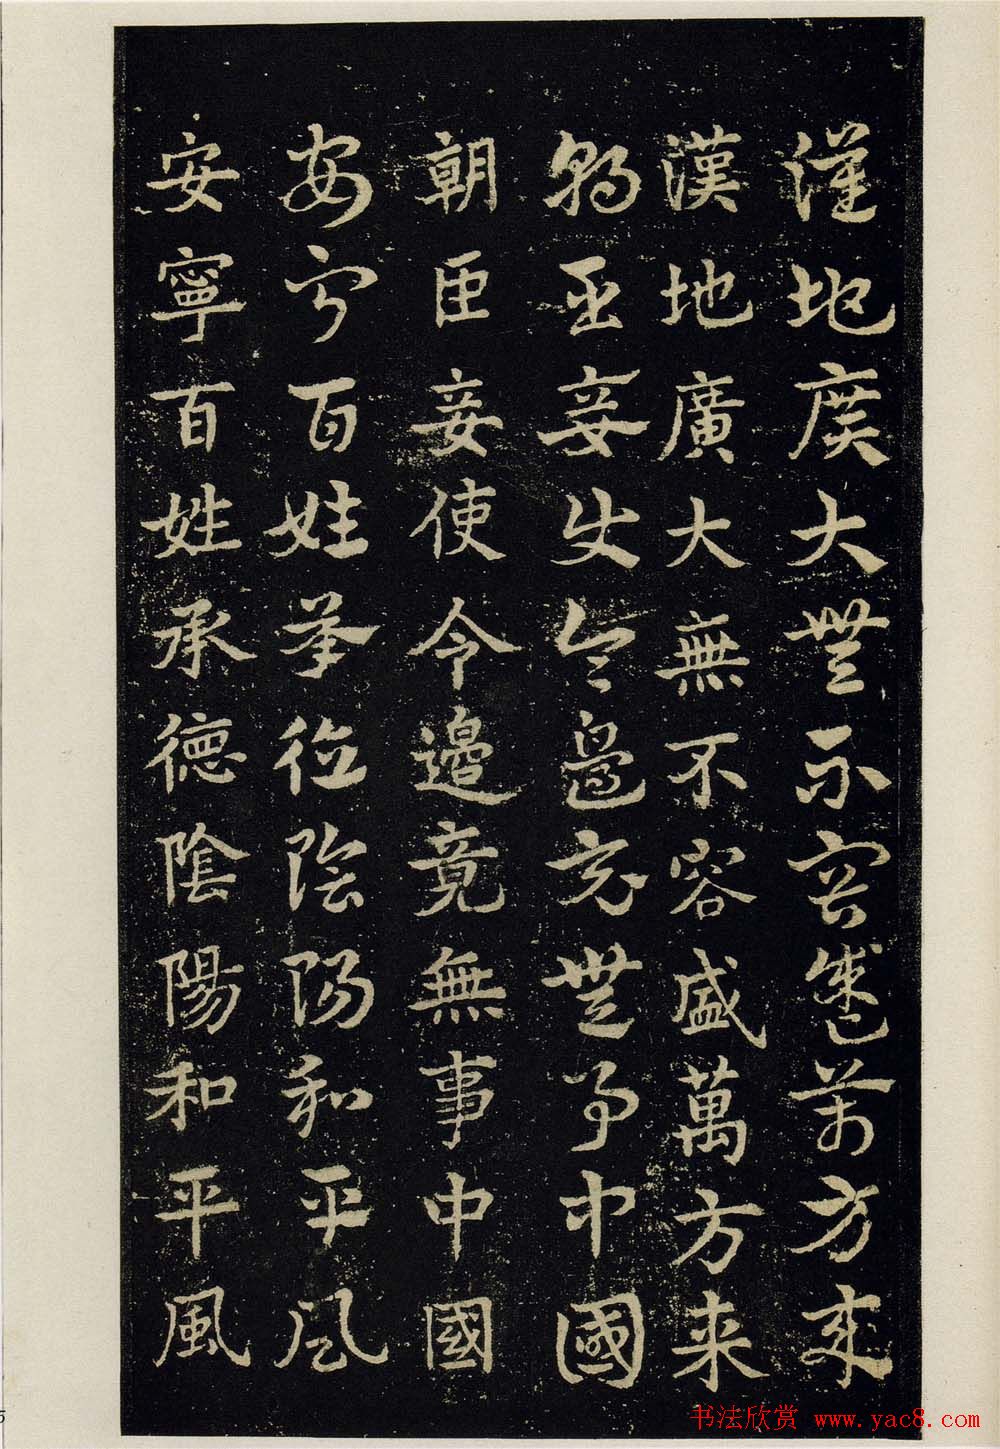 漢地廣大無不容盛萬方来
漢地廣大無不容盛萬方来
朝臣妾使令邊竟無事中國
朝臣妾使令邊竟無事中國
安寧百姓承德陰陽和平風
安寧百姓承德陰陽和平風
书法欣赏 www.yac8.com
5